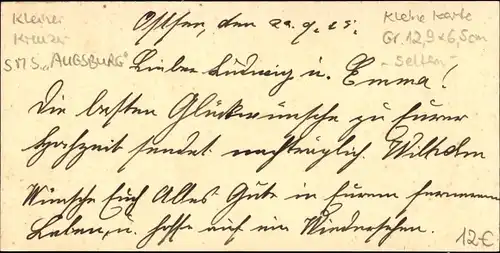 Kleiner
Kreuzer
SMS „AUGSBURG"
Kleine Karte
Gr. 12,9 x 6,5cm
- Selten -
Ostsee, den 22. 9. 15.
Lieber Ludwig u. Emma!
Die besten Glückwünsche zu Eurer
Hochzeit sendet nachträglich Wilhelm
Wünsche Euch Alles Gute in Eurem ferneren
Leben, u. hoffe auf ein Wiedersehen.
12€